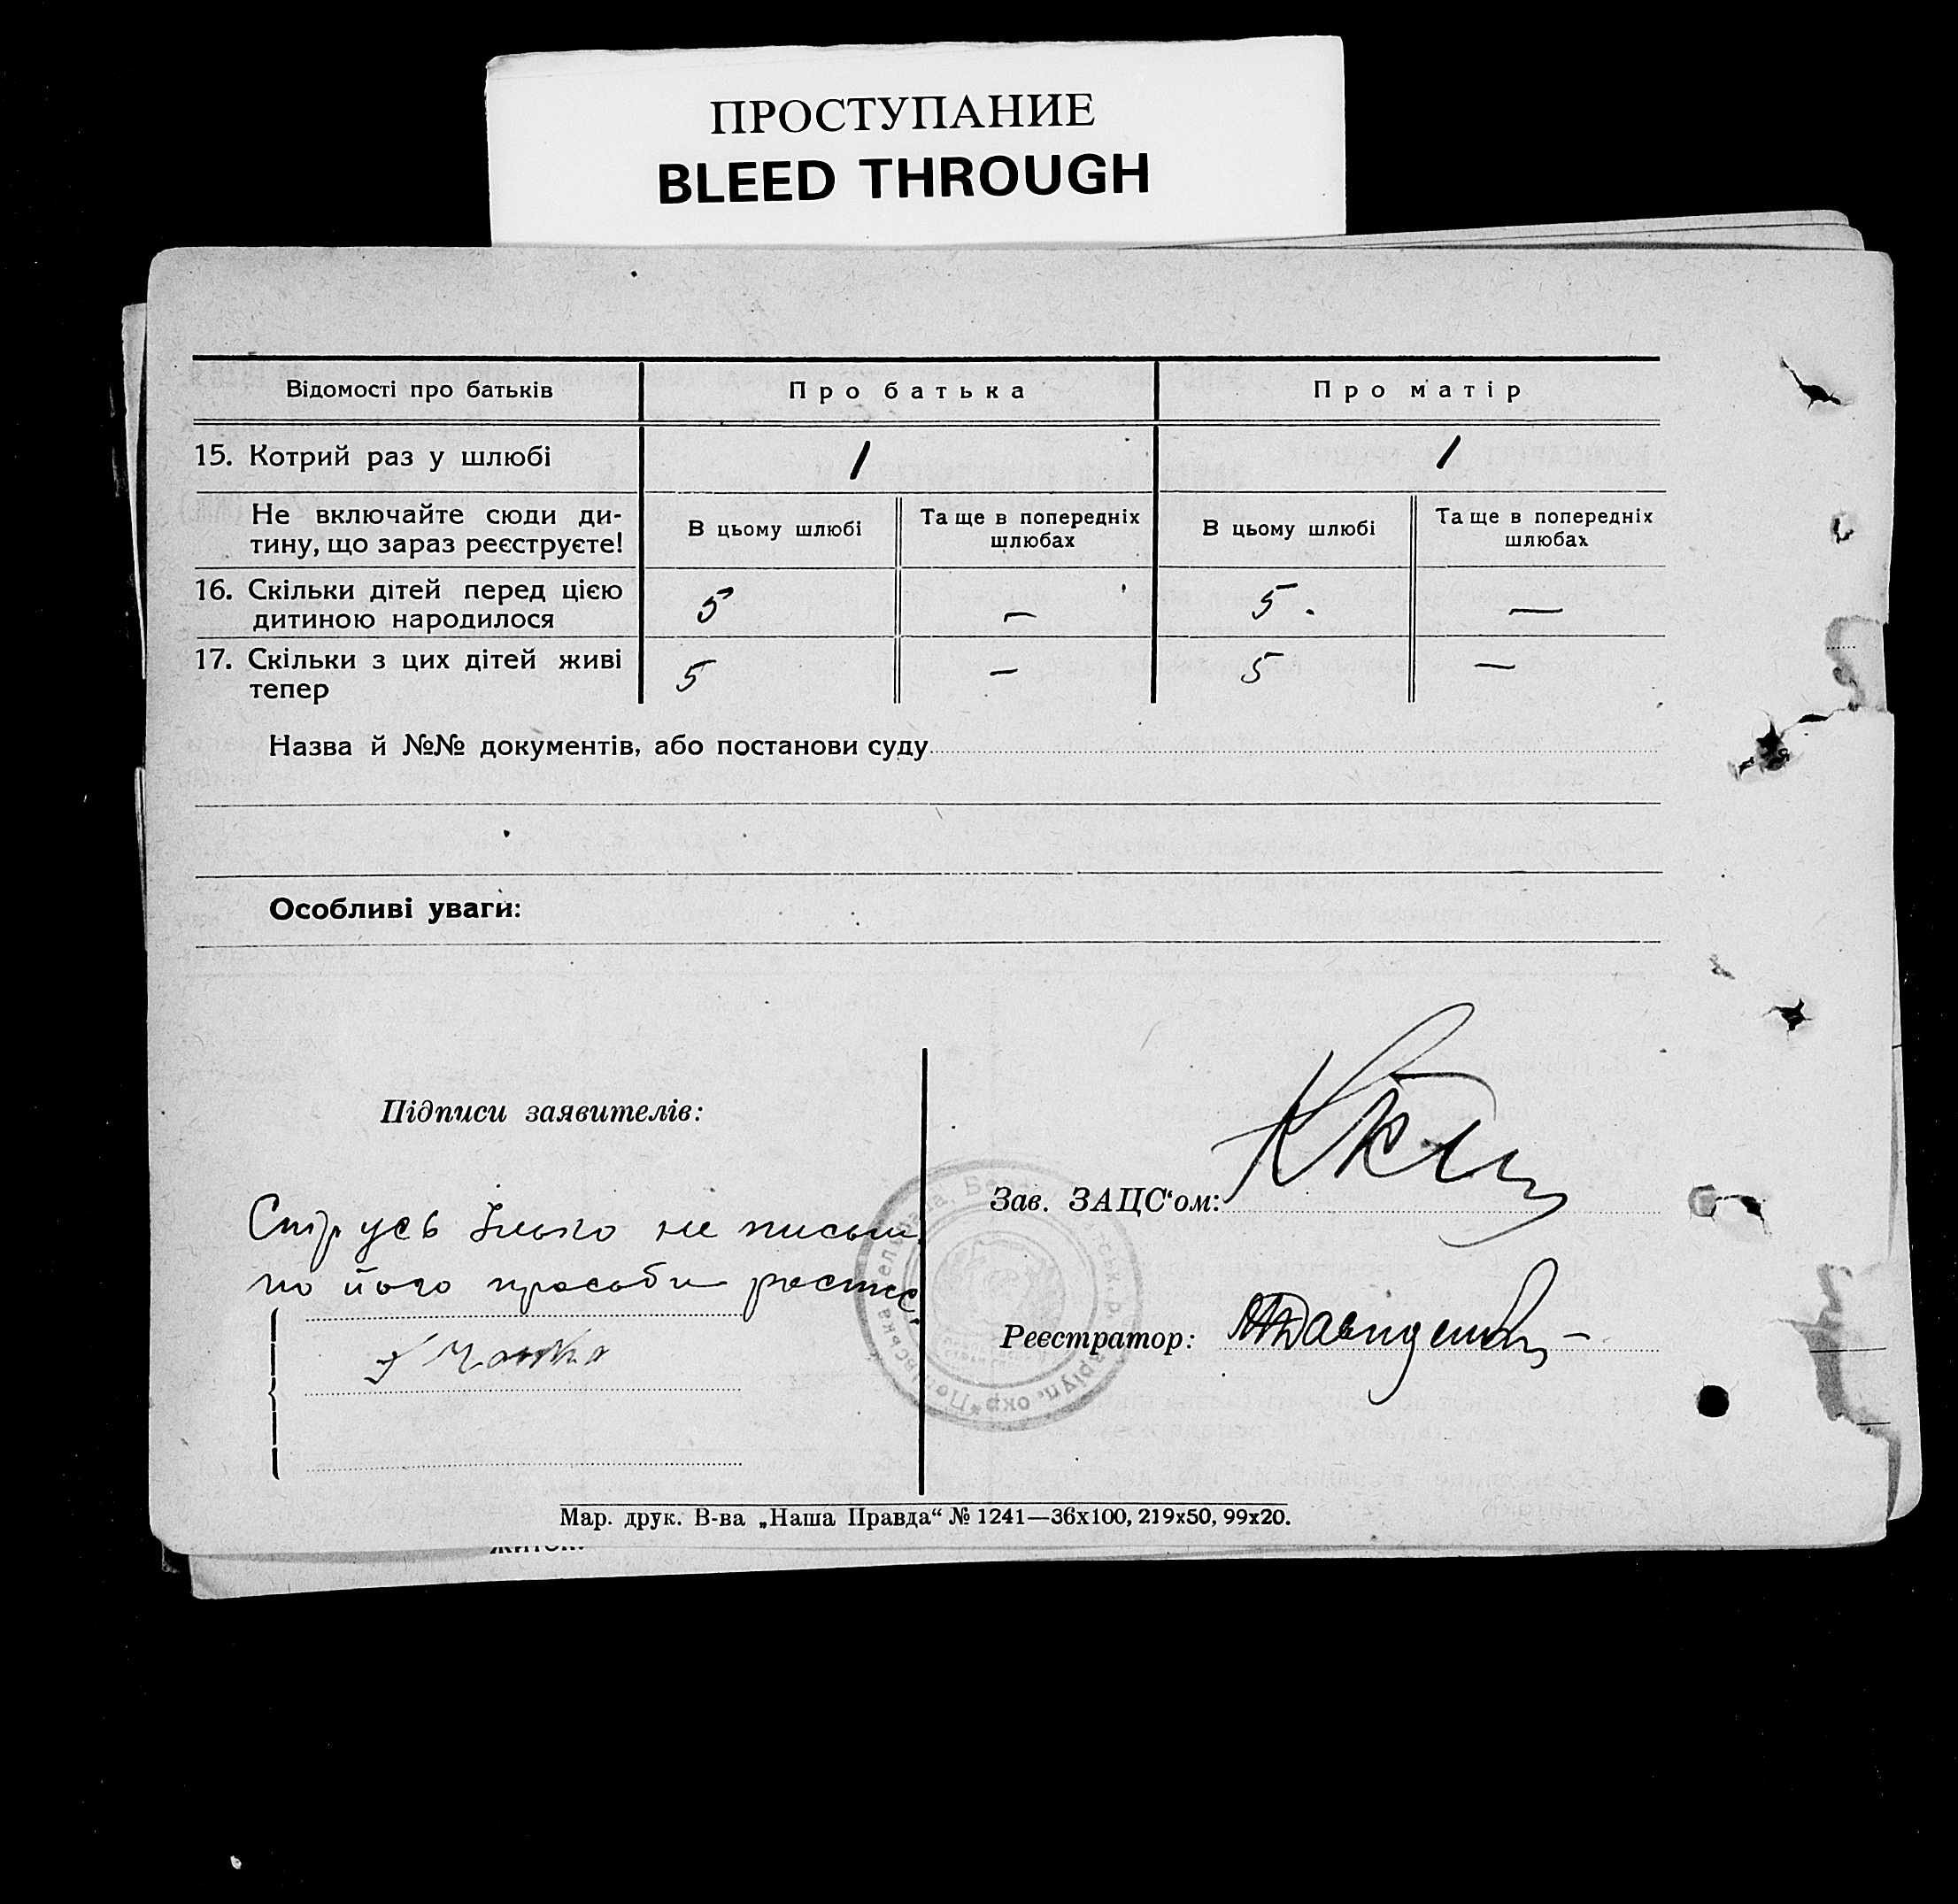 ПРОСТУПАНИЕ
BLEED THROUGH
Відомості про батьків Про батька Про матір
15. Котрий раз у шлюбі 1 1
Не включайте сюди ди-
тину, що зараз реєструєте!
В цьому шлюбі
Та ще в попередніх
шлюбах
В цьому шлюбі
Та ще в попередніх
шлюбах
16. Скільки дітей перед цією
дитиною народилося
5 — 5. —
17. Скільки з цих дітей живі
тепер
5 — 5 —
Назва й №№ документів, або постанови суду
Особливі уваги:
Підписи заявителів:
не письм
по його прозьби
Зав. ЗАЦС'ом:
Реєстратор:
Мар. друк. В-ва „Наша Правда“ № 1241—36х100, 219х50, 99х20.